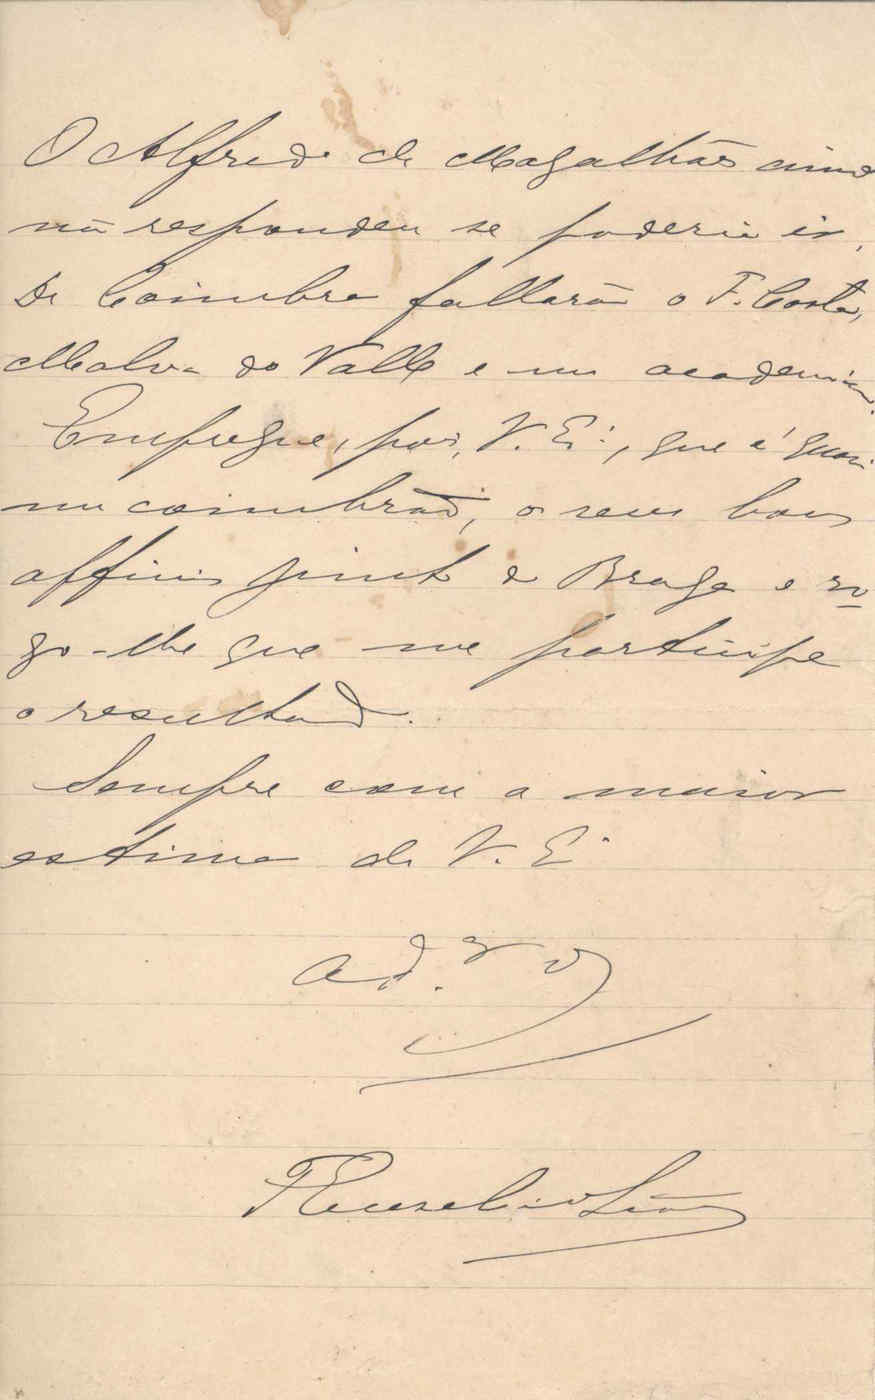 O Alfredo de Magalhães ainda
não respondeu se poderia ir.
De Coimbra fallarão o F. Costa,
Malva do Valle e um academico.
Empregue, pois, V. Ex.ª, que é quasi
um coimbrão, os seus bons
officios junto do Braga e ro-
go-lhe que me participe
o resultado.
Sempre com a maior
estima de V. Ex.ª
ad.ʳ
F Euzebio Leão